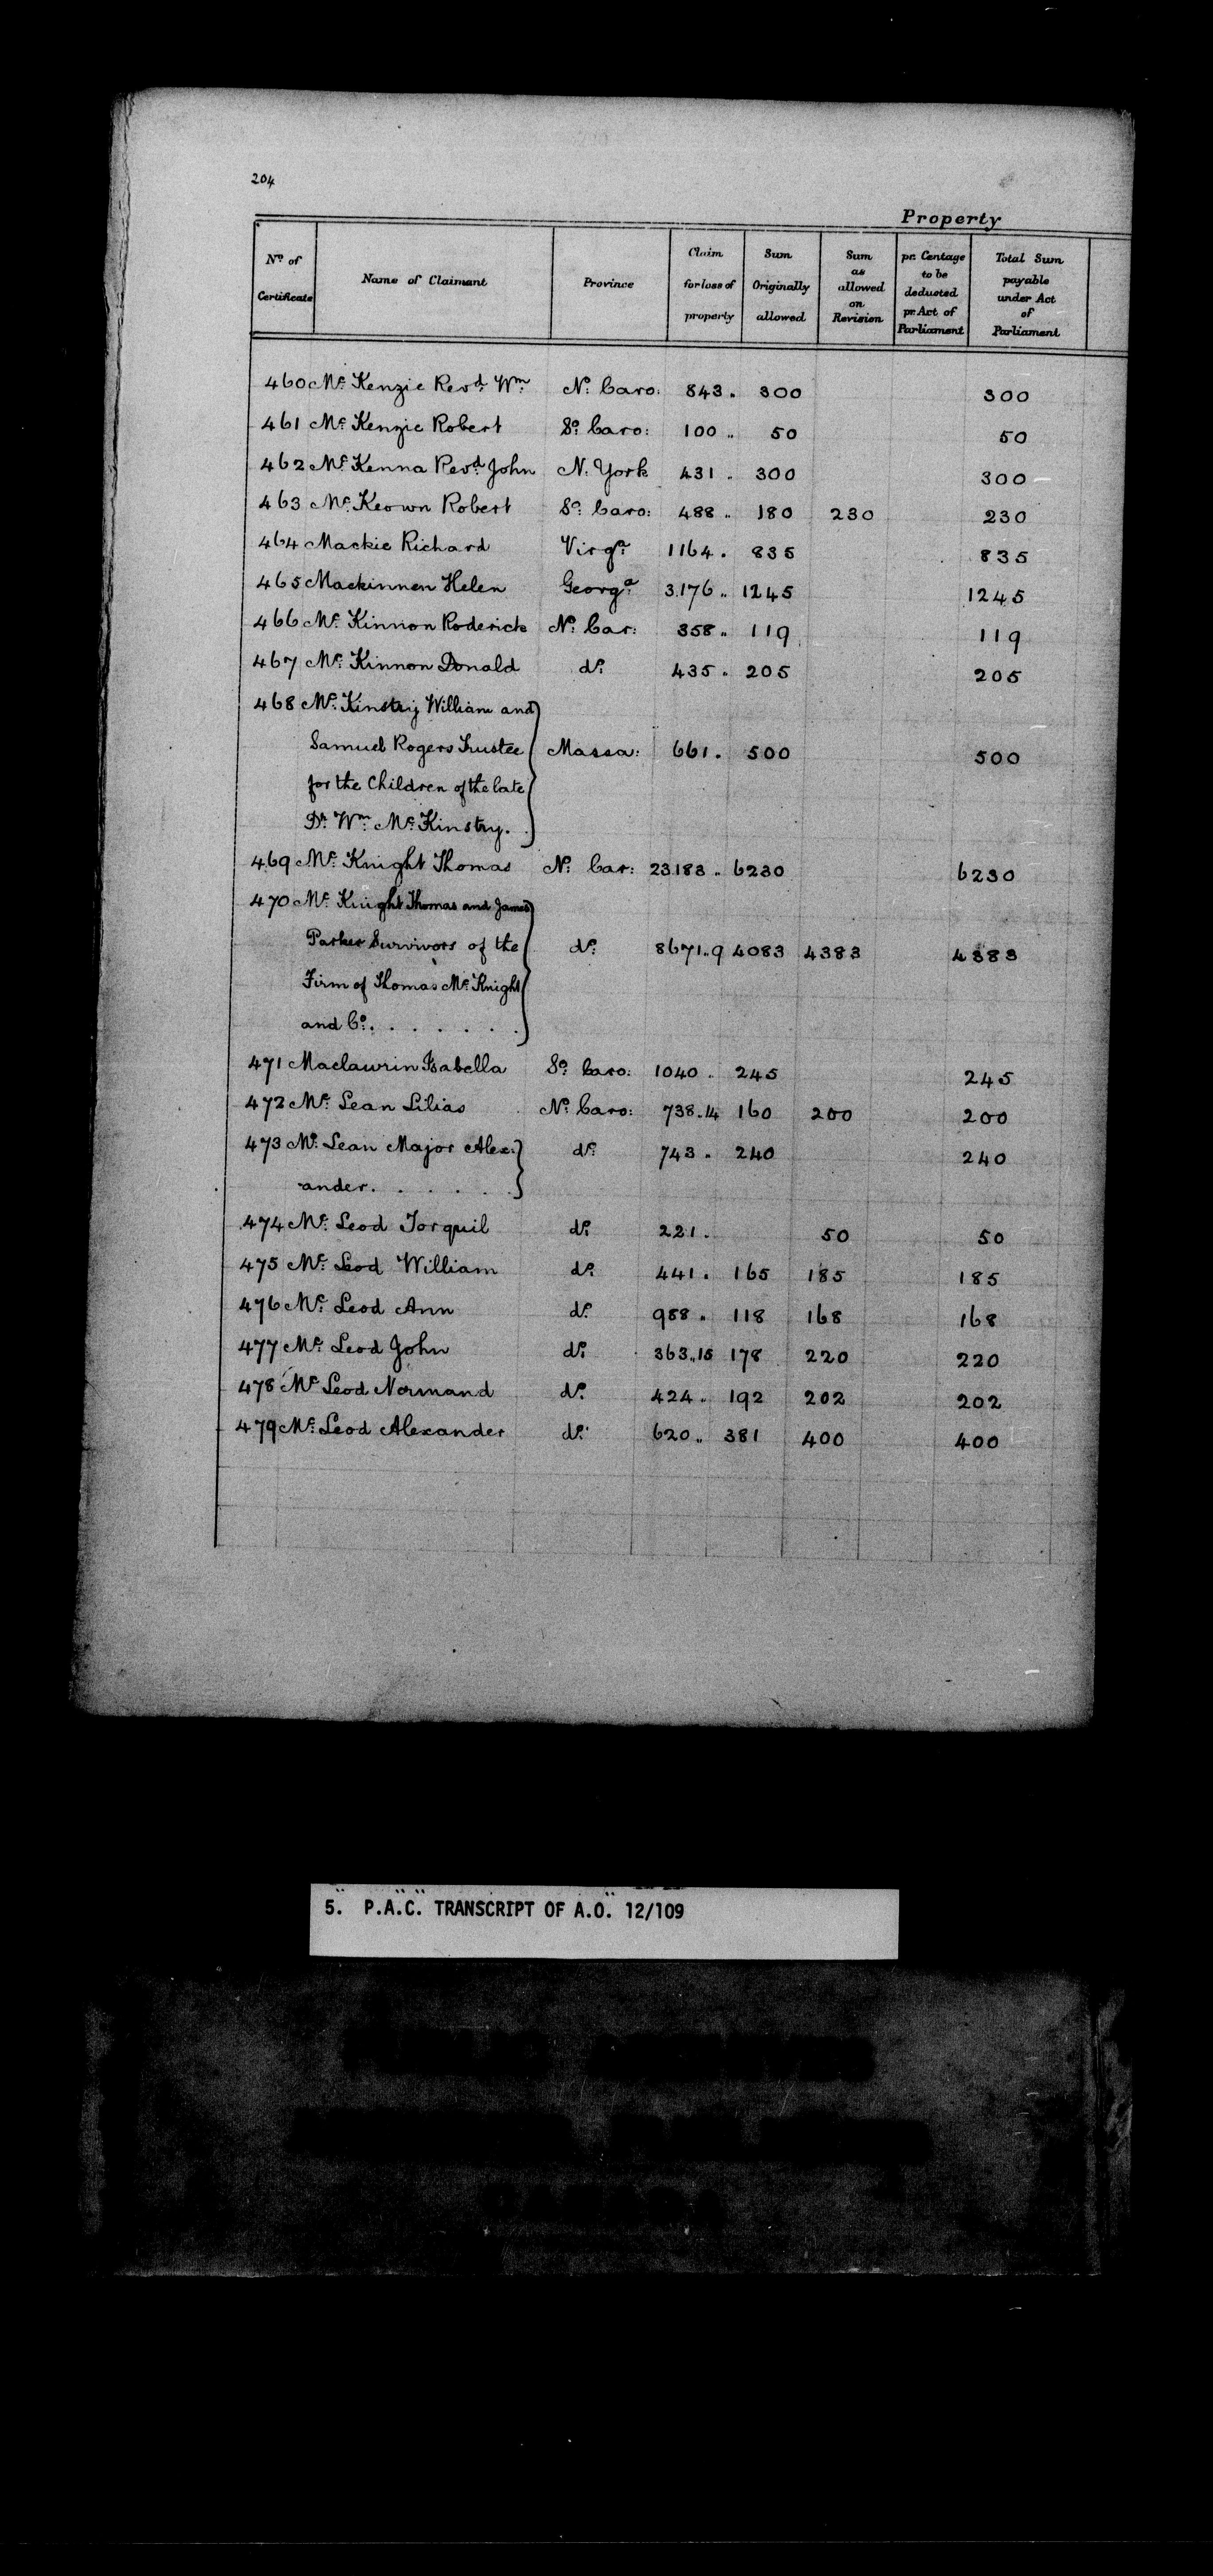 204
Property
No. of Certificate Name of Claimant Province Claim for loss of property Sum Originally allowed Sum as allowed on Revision pr. Centage to be deducted pr. Act of Parliament Total Sum payable under Act of Parliament
460 Mc. Kenzie Revd. Wm. No. Caro: 843 .. 300 300
461 Mc. Kenzie Robert So. Caro: 100 .. 50 50
462 Mc. Kenna Revd. John N. York 431 .. 300 300
463 Mc. Keown Robert So. Caro: 488 .. 180 230 230
464 Mackie Richard Virga. 1164 .. 835 835
465 Mackinnen Helen Georga. 3.176 .. 1245 1245
466 Mc. Kinnon Roderick No. Car: 358 .. 119 119
467 Mc. Kinnon Donald do. 435 .. 205 205
468 Mc. Kinstry William and
Samuel Rogers Trustee Massa: 661 .. 500 500
for the Children of the late
Dr. Wm. Mc. Kinstry.
469 Mc. Knight Thomas No. Car: 23.183 .. 6230 6230
470 Mc. Knight Thomas and James
Parker Survivors of the do. 8671..9 4083 4383 4383
Firm of Thomas Mc. Knight
and Co. . . . . . .
471 Maclaurin Isabella So. Caro: 1040 .. 245 245
472 Mc. Lean Lilias No. Caro: 738..14 160 200 200
473 Mc. Lean Major Alex- do. 743 .. 240 240
ander. . . . . .
474 Mc. Leod Torquil do. 221 .. 50 50
475 Mc. Leod William do. 441 .. 165 185 185
476 Mc. Leod Ann do. 988 .. 118 168 168
477 Mc. Leod John do. 363..15 178 220 220
478 Mc. Leod Normand do. 424 .. 192 202 202
479 Mc. Leod Alexander do. 620 .. 381 400 400
5. P.A.C. TRANSCRIPT OF A.O. 12/109